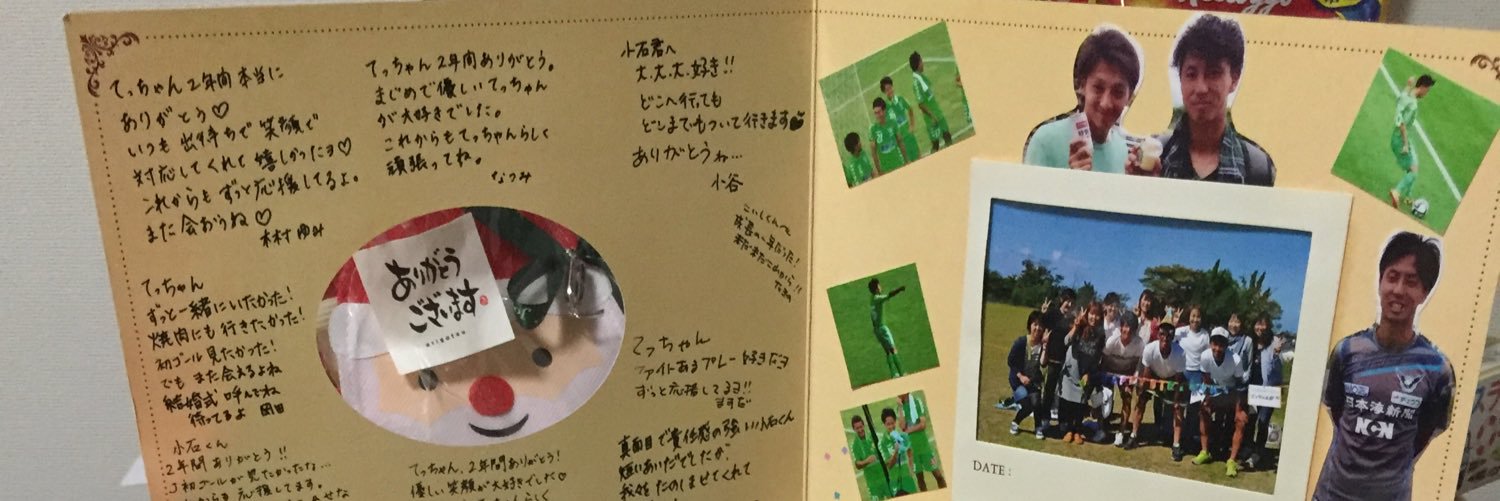 てっちゃん2年間本当に
ありがとう♡
いつも出待ちで笑顔で
対応してくれて嬉しかったヨ♡
これからもずっと応援してるよ。
また会おうね♡
木村ゆみ
てっちゃん
ずっと一緒にいたかった!
焼肉にも行きたかった!
初ゴール見たかった!
でもまた会えるよね
結婚式呼んでね
待ってるよ 岡田
小石くん
2年間ありがとう!!
初ゴールが見たかったな…
応援してます。
てっちゃん2年間ありがとう。
まじめで優しいてっちゃん
が大好きでした。
これからもてっちゃんらしく
頑張ってね。
なつみ
ありがとう
ございます
てっちゃん、2年間ありがとう!
優しい笑顔が大好きでした♡
てっちゃんらしく
小石君へ
大、大、大、好き!!
どこへ行っても
どこまでもついて行きます
ありがとうね…
小谷
こいしくんへ
成長の1年だった!
まだまだこれから!!
てっちゃん
ファイトあるプレー好きだヨ
ずっと応援してるヨ!!
ますだ
真面目で責任感の強い小石くん
短いあいだでしたが
我々をたのしませてくれて
DATE:
日本海新聞
NCN
Kellogg's